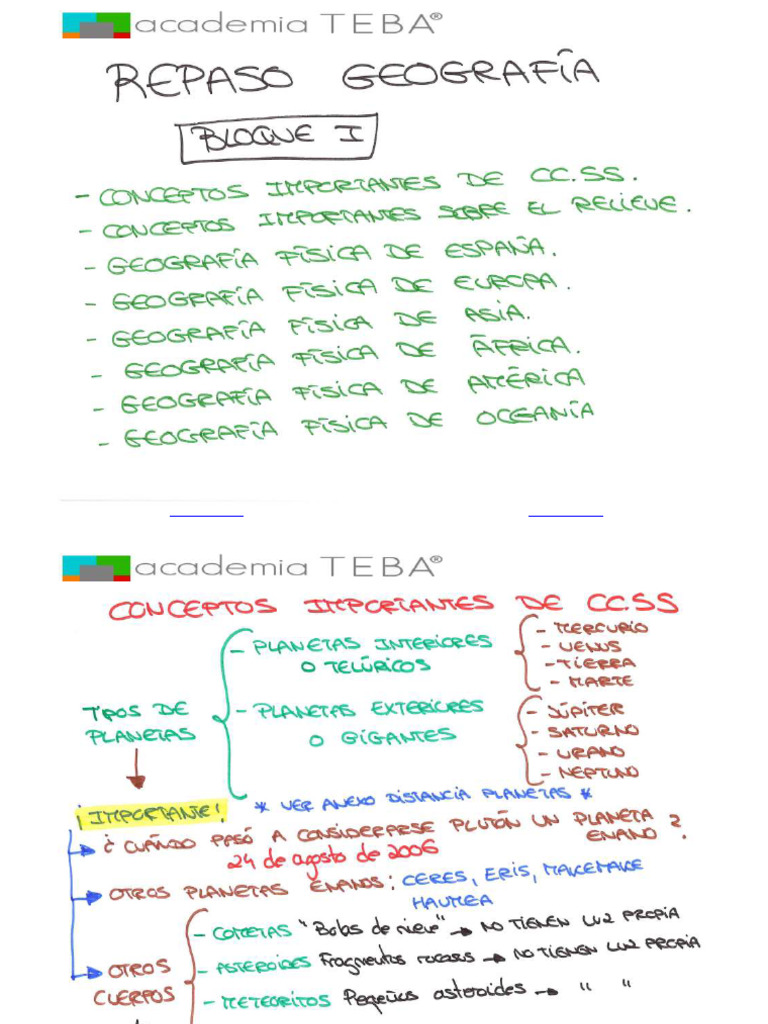 academia TEBA®
REPASO GEOGRAFÍA
BLOQUE I
- CONCEPTOS IMPORTANTES DE CC.SS.
- CONCEPTOS IMPORTANTES SOBRE EL RELIEVE.
- GEOGRAFÍA FÍSICA DE ESPAÑA.
- GEOGRAFÍA FÍSICA DE EUROPA.
- GEOGRAFÍA FÍSICA DE ASIA.
- GEOGRAFÍA FÍSICA DE ÁFRICA.
- GEOGRAFÍA FÍSICA DE AMÉRICA
- GEOGRAFÍA FÍSICA DE OCEANÍA
academia TEBA®
CONCEPTOS IMPORTANTES DE CC.SS
TIPOS DE
PLANETAS
- PLANETAS INTERIORES
O TELÚRICOS
- MERCURIO
- VENUS
- TIERRA
- MARTE
- PLANETAS EXTERIORES
O GIGANTES
- JÚPITER
- SATURNO
- URANO
- NEPTUNO
¡IMPORTANTE!
* VER ANEXO DISTANCIA PLANETAS *
¿CUÁNDO PASÓ A CONSIDERARSE PLUTÓN UN PLANETA
ENANO?
24 de agosto de 2006
OTROS PLANETAS ENANOS: CERES, ERIS, MAKEMAKE
HAUMEA
OTROS
CUERPOS
- COMETAS "Bolas de nieve" → NO TIENEN LUZ PROPIA
- ASTEROIDES Fragmentos rocosos → NO TIENEN LUZ PROPIA
- METEORITOS Pequeños asteroides → " "